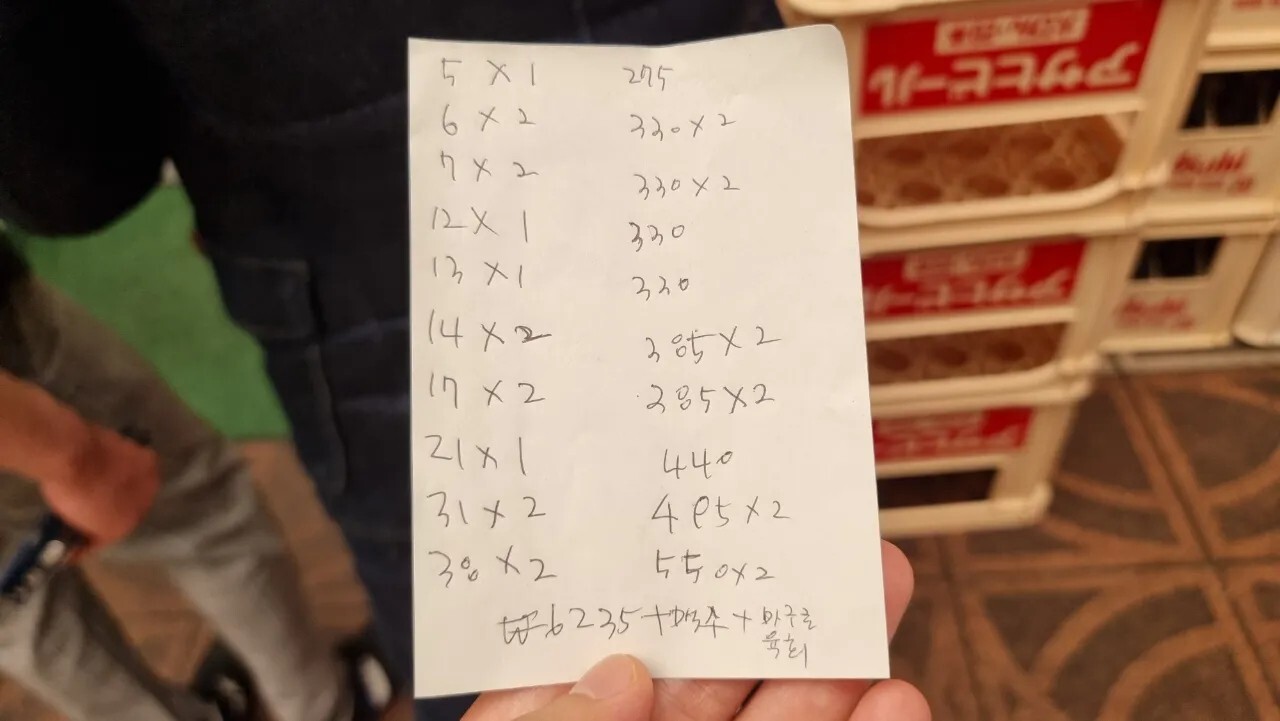 5 × 1 275
6 × 2 330×2
7 × 2 330×2
12 × 1 330
13 × 1 330
14 × 2 385×2
17 × 2 385×2
21 × 1 440
31 × 2 495×2
38 × 2 550×2
6235+맥주+마구로
육회
アサヒビール
Asahi
アサヒビール
アサヒビール